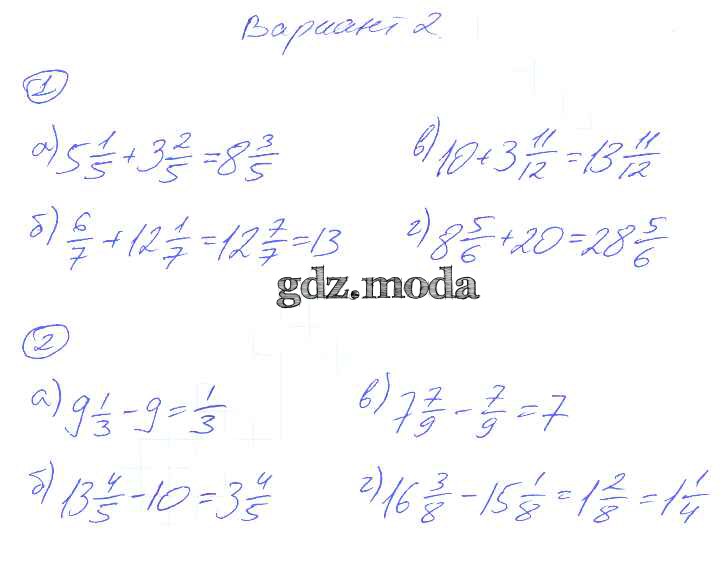 Вариант 2
1
а) 5 1/5 + 3 2/5 = 8 3/5
в) 10 + 3 11/12 = 13 11/12
б) 6/7 + 12 1/7 = 12 7/7 = 13
г) 8 5/6 + 20 = 28 5/6
gdz.moda
2
а) 9 1/3 - 9 = 1/3
в) 7 7/9 - 7/9 = 7
б) 13 4/5 - 10 = 3 4/5
г) 16 3/8 - 15 1/8 = 1 2/8 = 1 1/4